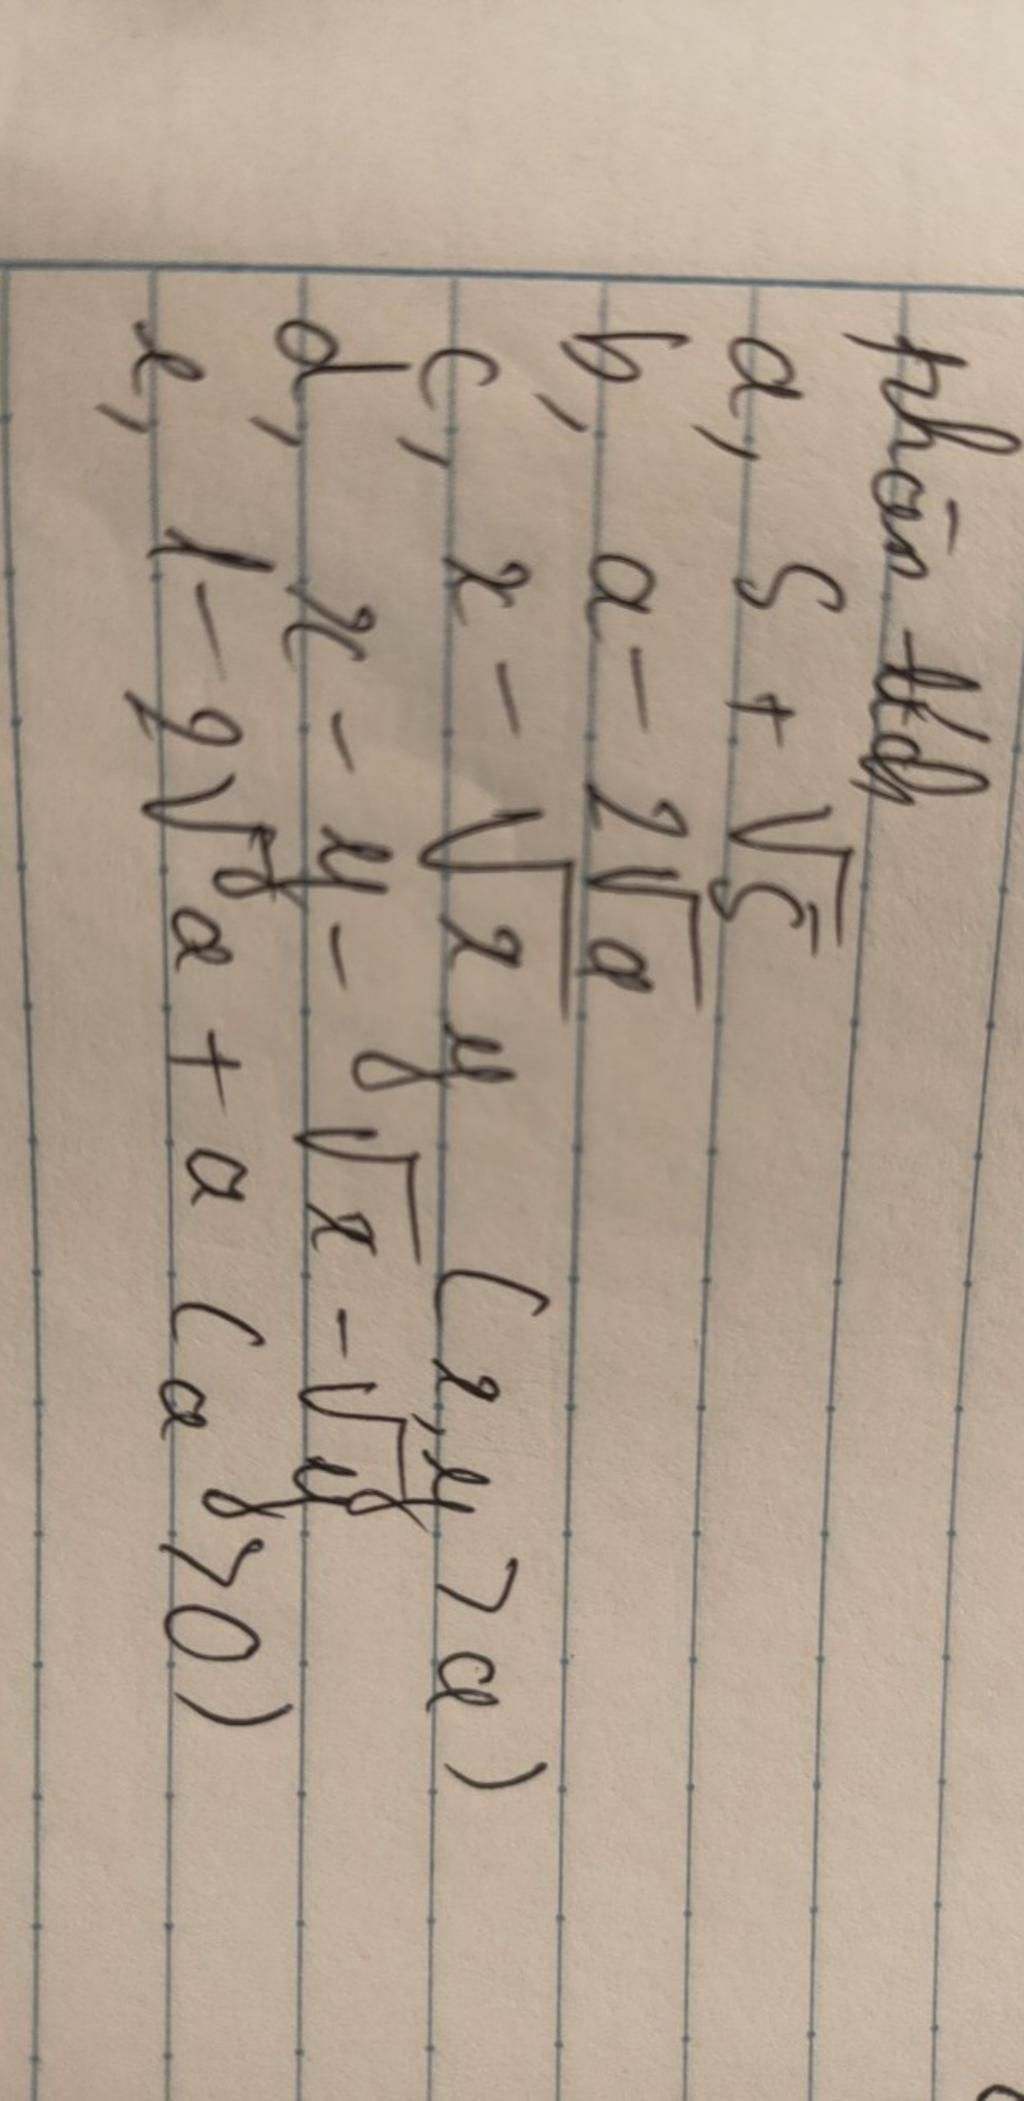 phân tích
a, 5 + √5
b, a - 2√a
c, x - √xy (x,y > 0)
d, x - y - y√x - √y
e, 1 - 2√a + a (a > 0)